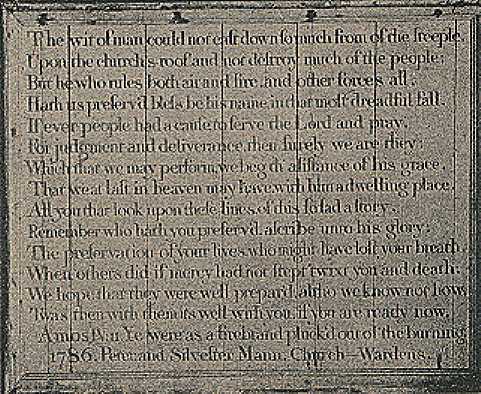 The wit of man could not caſt down ſo much from of the ſteeple,
Upon the church's roof and not deſtroy much of the people;
But he who rules both air and fire, and other forces all,
Hath us preſerv'd Bleſs be his name, in that moſt dreadful fall.
If ever people had a cauſe to ſerve the Lord and pray,
For judgment and deliverance then ſurely we are they;
Which that we may perform, we beg th' aſiſtance of his grace,
That we at laſt in heaven may have with him a dwelling place.
All you that look upon theſe lines of this ſo ſad a ſtory,
Remember who hath you preſerv'd, aſcribe unto his glory;
The preſervation of your lives who might have loſt your breath,
When others did if mercy had not ſtept twixt you and death:
We hope that they were well prepar'd, altho we know not how,
'Twas then with them its well with you, if you are ready now,
Amos Ye were as a firebrand pluck'd out of the burning
1786. Peter and Silveſter Mann, Church-Wardens.